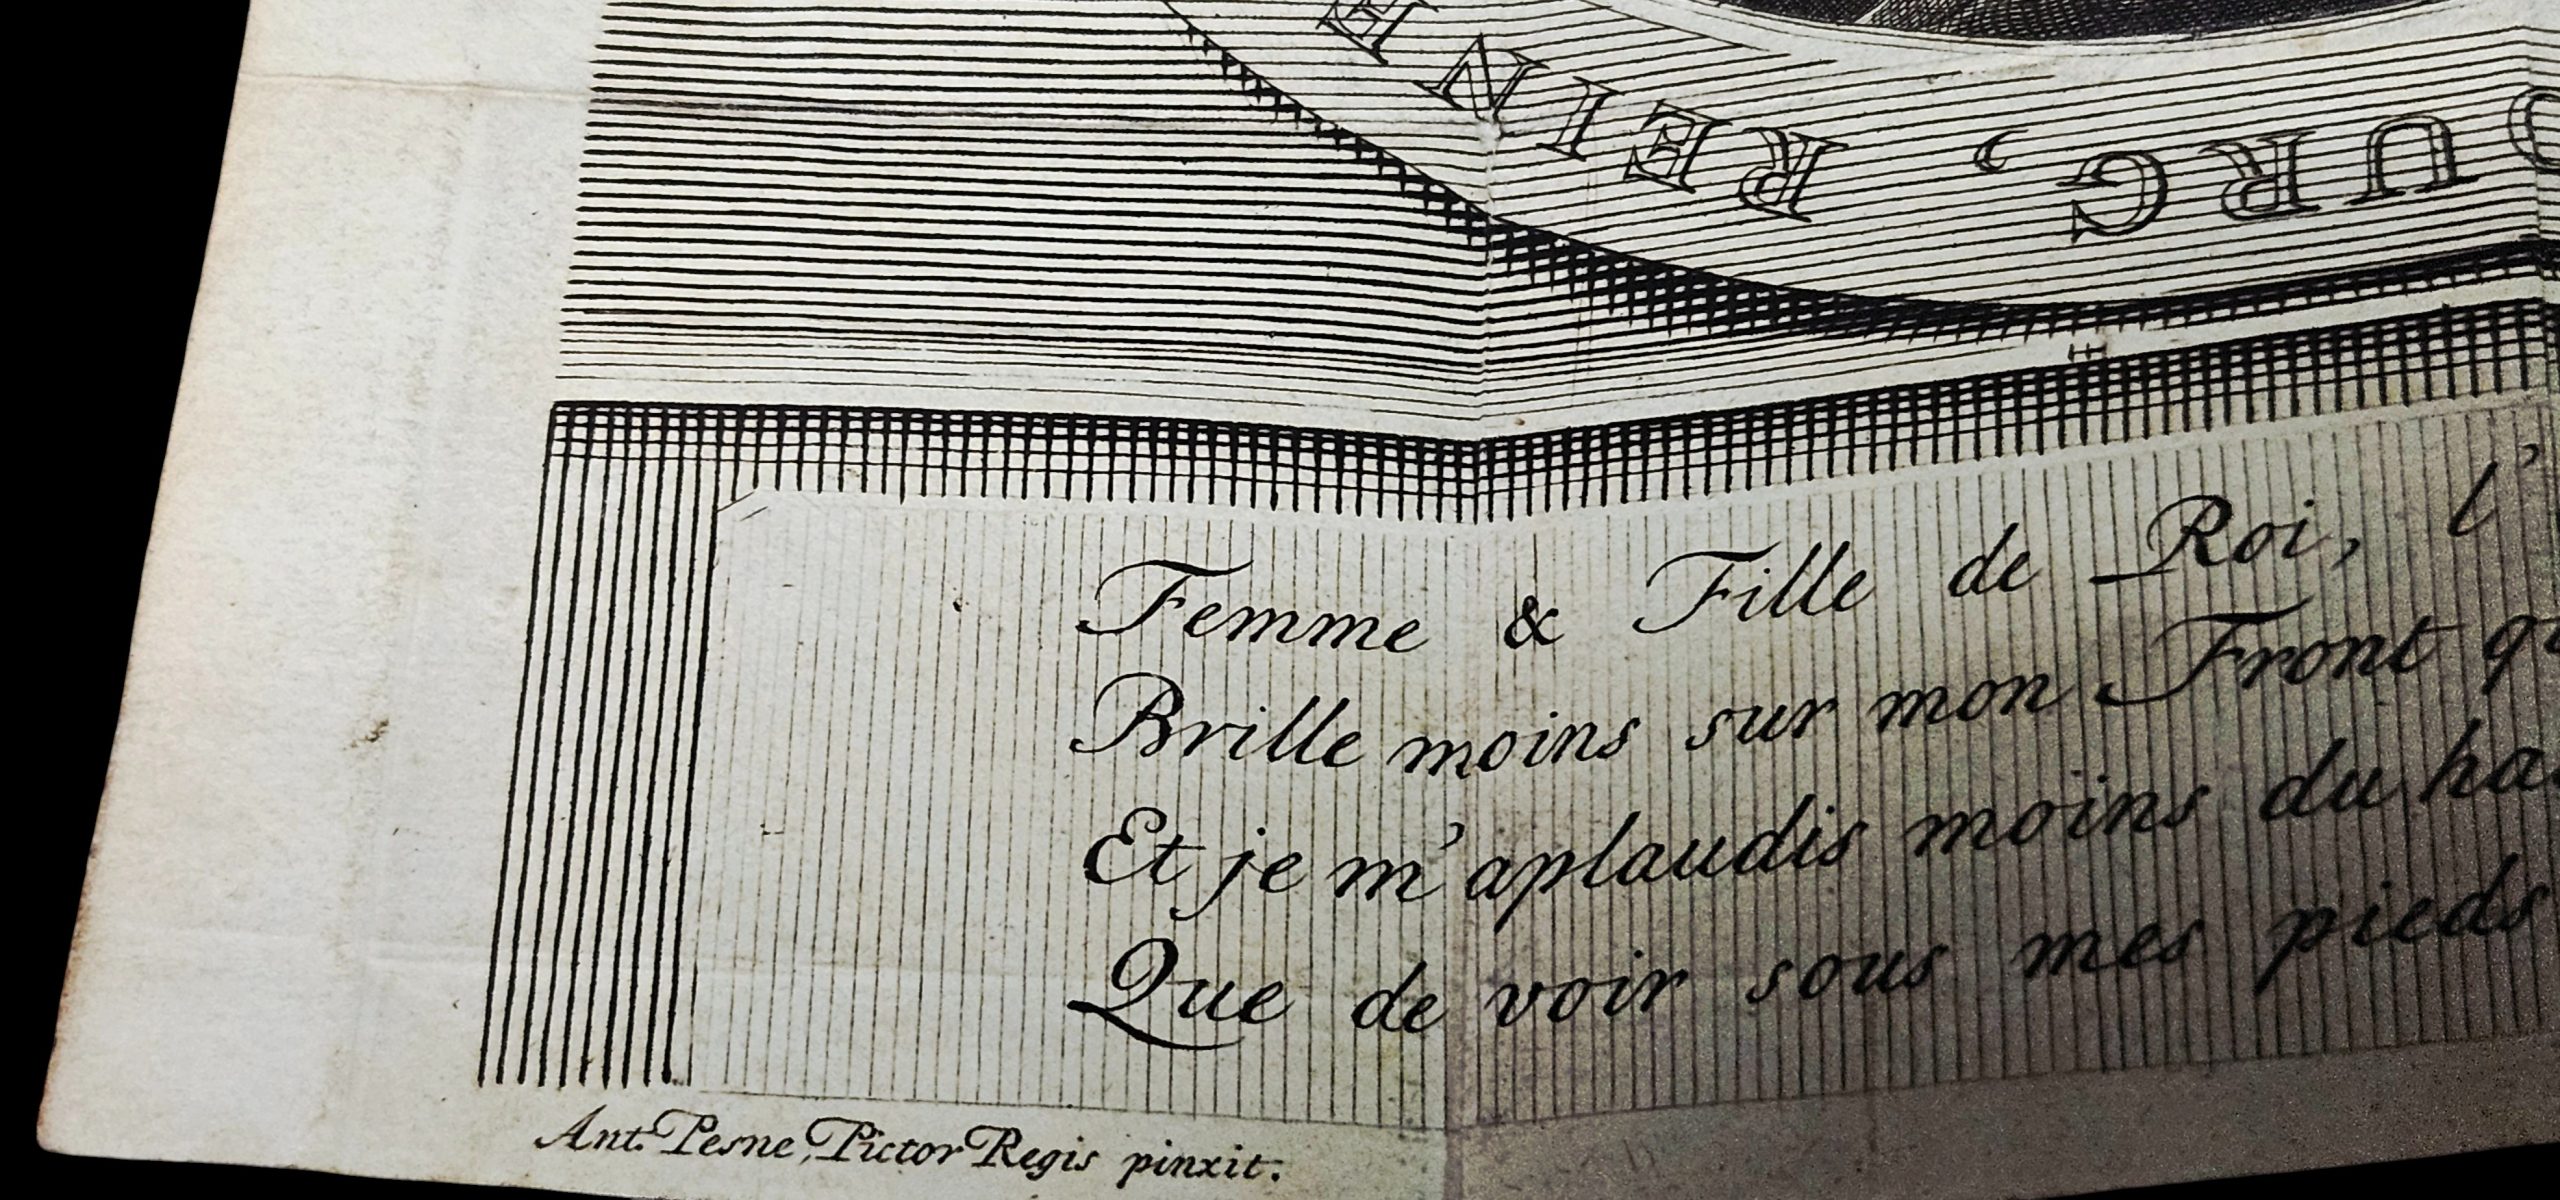 OURG, REINE
Femme & Fille de Roi, l'
Brille moins sur mon Front qu
Et je m'aplaudis moins du ha
Que de voir sous mes pieds
Ant. Pesne, Pictor Regis pinxit.